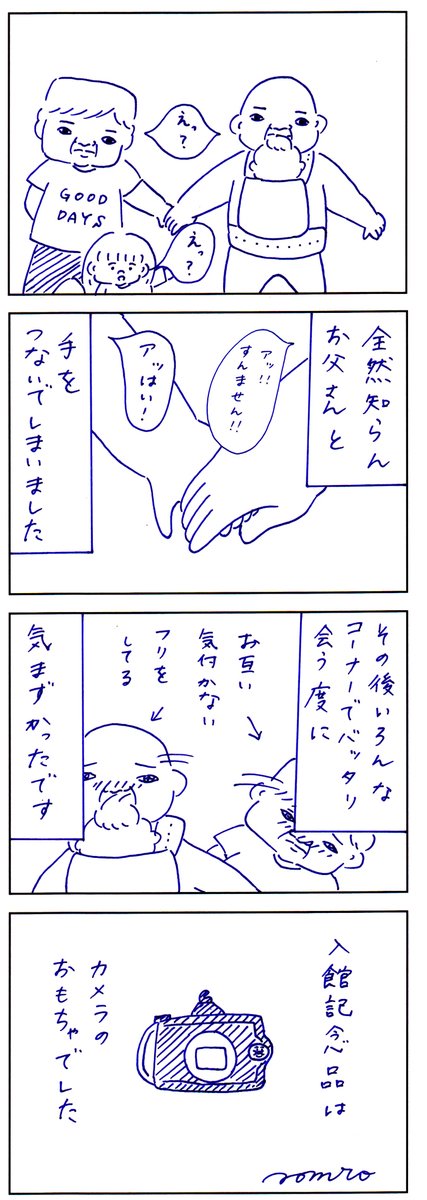 えっ?
GOOD
DAYS
えっ?
全然知らん
お父さんと
アッ!!
すんません!!
アッはい!
手を
つないでしまいました
その後いろんな
コーナーでバッタリ
会う度に
お互い
気付かない
フリを
してる
気まずかったです
入館記念品は
カメラの
おもちゃでした
nomro